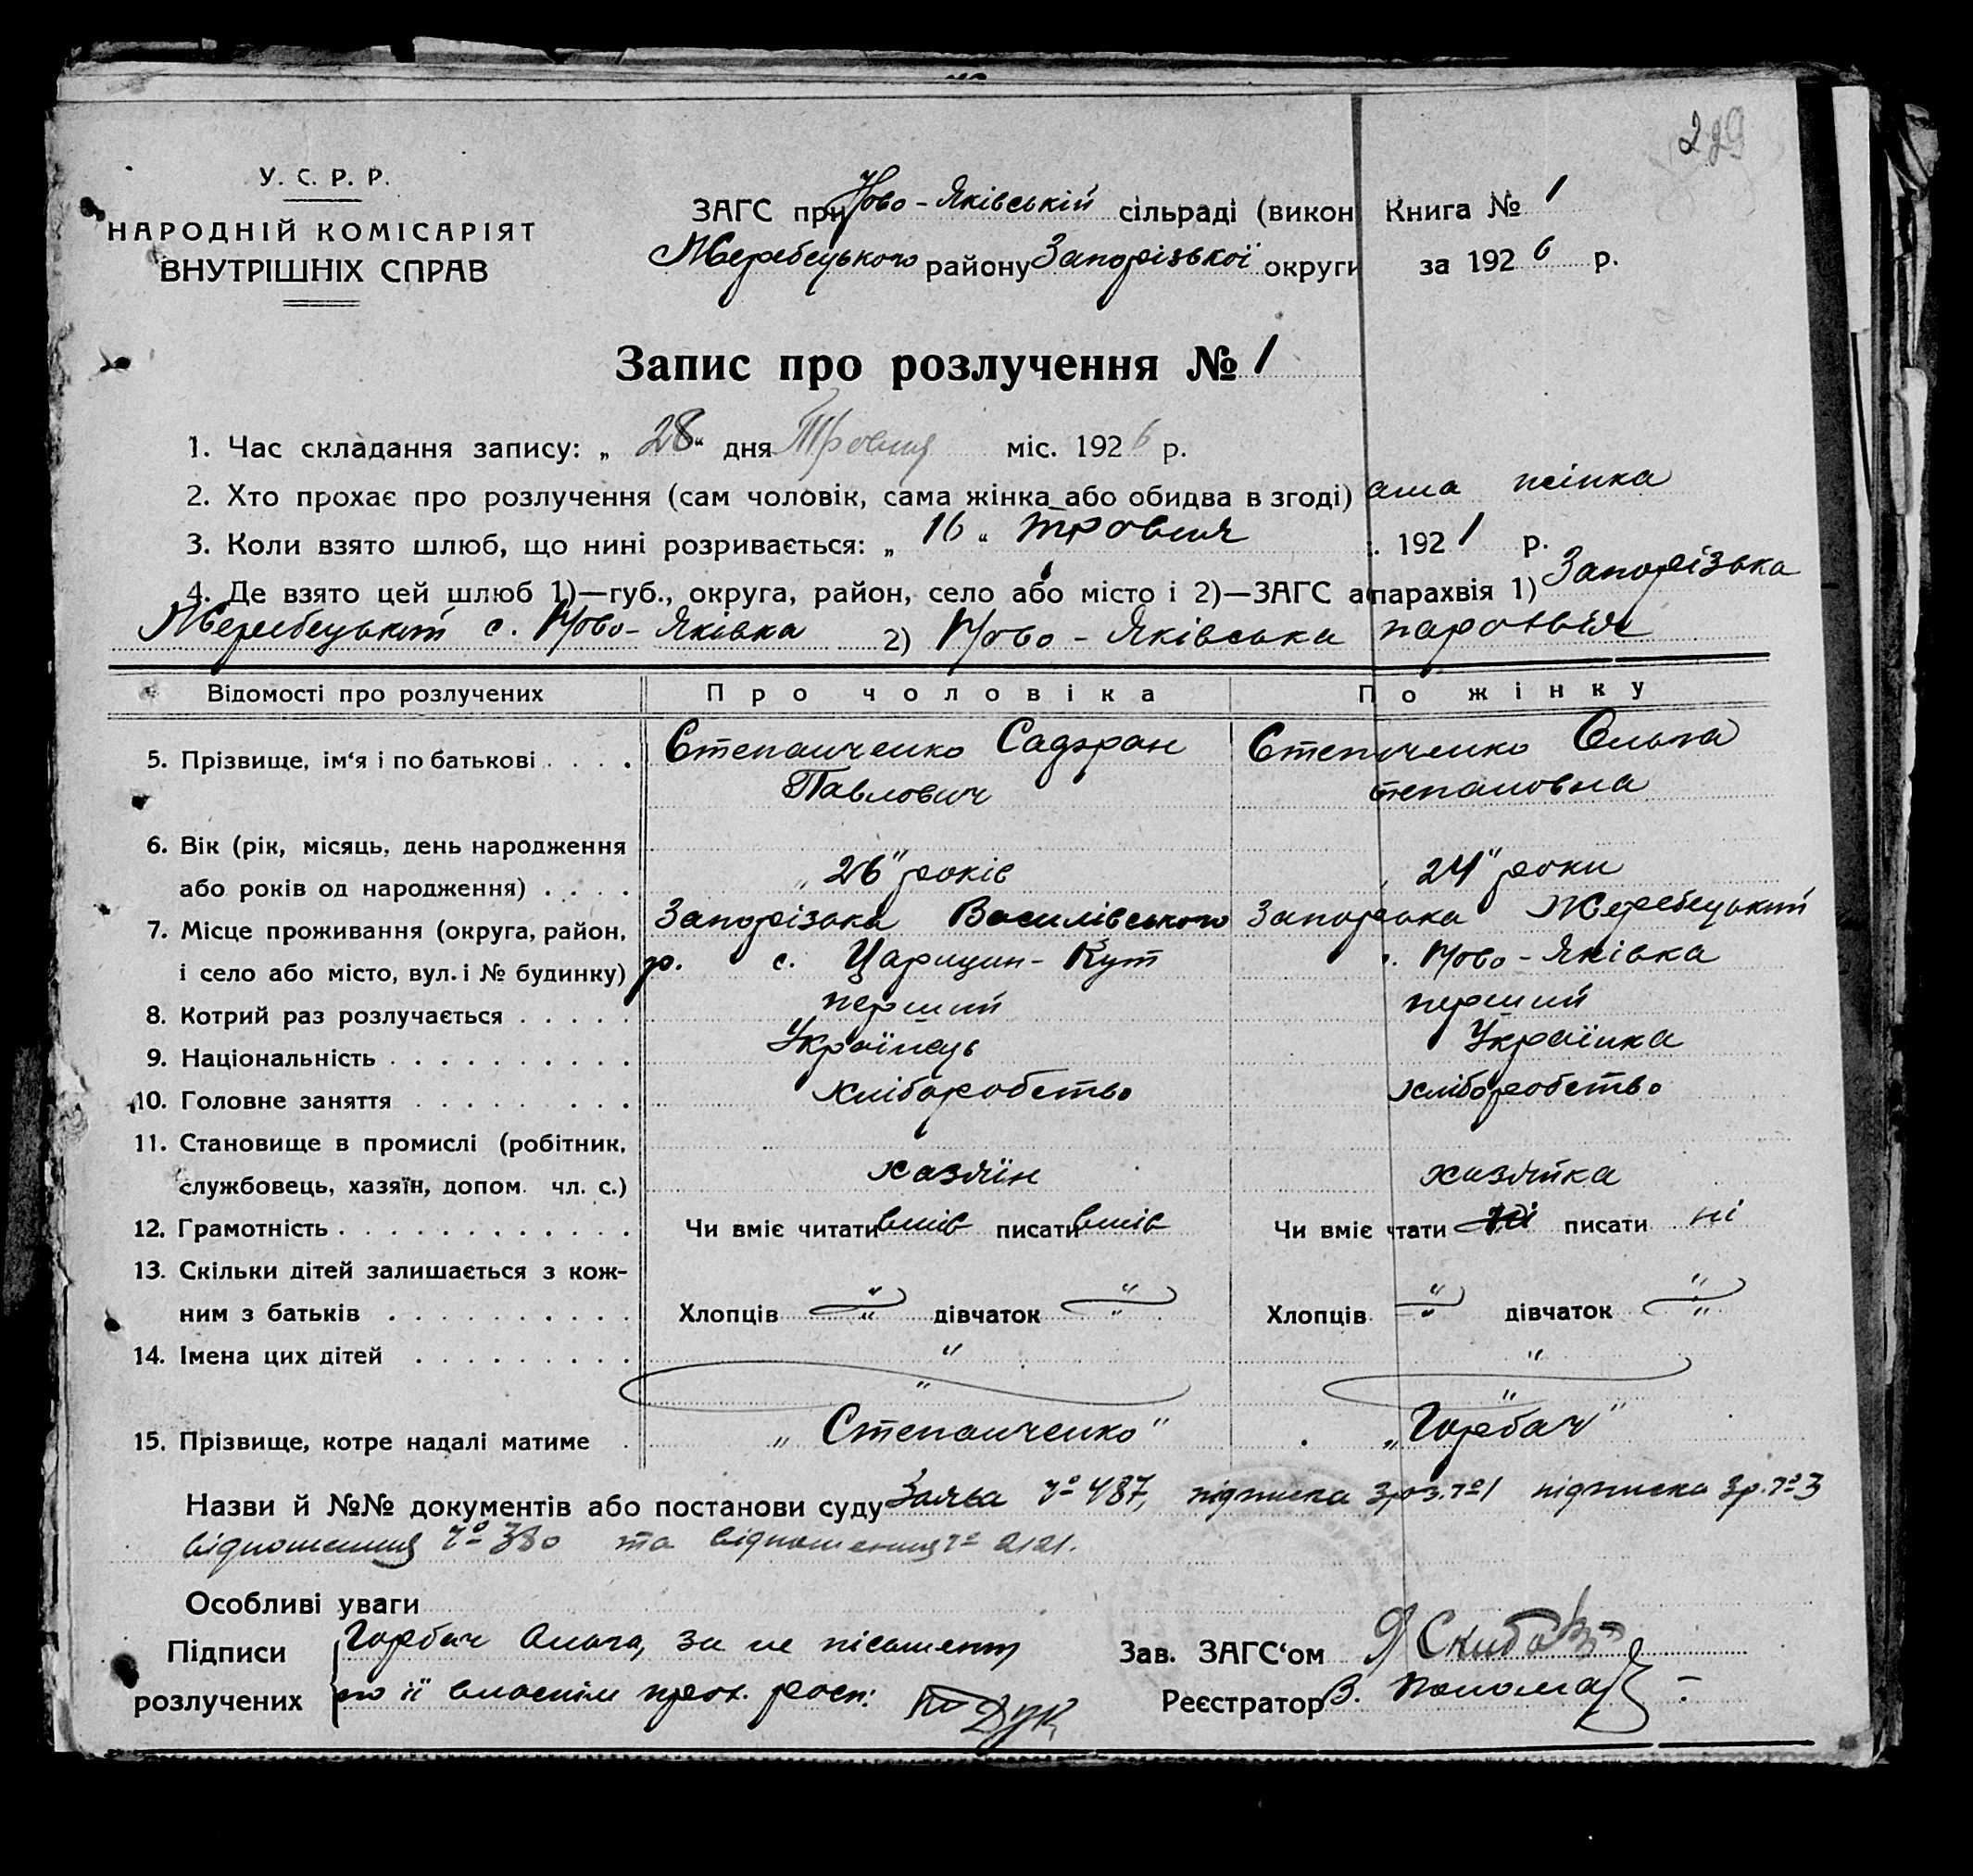 229
У. С. Р. Р.
НАРОДНІЙ КОМІСАРІЯТ
ВНУТРІШНІХ СПРАВ
ЗАГС при Ново-Яківській сільраді (викон Книга № 1
Жеребецького району Запорізької округи за 1926 р.
Запис про розлучення № 1
1. Час складання запису: „ 28 “ дня Тровня міс. 1926 р.
2. Хто прохає про розлучення (сам чоловік, сама жінка або обидва в згоді) ама жінка
3. Коли взято шлюб, що нині розривається: „ 16 “ тровня 1921 р.
4. Де взято цей шлюб 1)—губ., округа, район, село або місто і 2)—ЗАГС а парахвія 1) Запорізька
Жеребецький с. Ново-Яківка 2) Ново-Яківська парохвія
Відомості про розлучених Про чоловіка По жінку
5. Прізвище, ім‘я і по батькові Степанченко Садэран Степченко Ольга
Павлович тепановна
6. Вік (рік, місяць, день народження
або років од народження) „ 26 " років 24 " роки
7. Місце проживання (округа, район, Запорізька Василівського Запорська Жеребецький
і село або місто, вул. і № будинку) р. с. Царицин-Кут . Ново-Яківка
8. Котрий раз розлучається перший перший
9. Національність Українець Українка
10. Головне заняття хліборобство хліборобство
11. Становище в промислі (робітник,
службовець, хазяїн, допом. чл. с.) хазяїн хазяйка
12. Грамотність Чи вміє читати вміє писати вміє Чи вміє чтати ні писати ні
13. Скільки дітей залишається з кож-
ним з батьків Хлопців " дівчаток " Хлопців " дівчаток "
14. Імена цих дітей " "
" "
15. Прізвище, котре надалі матиме „ Степанченко " „ Горбач "
Назви й №№ документів або постанови суду Заява № 487, підписка зроз. № 1 підписка зр. № 3
відношення № 380 та відношення № 2121.
Особливі уваги
Підписи Горбач Ольга, за не пісьменну Зав. ЗАГС‘ом Я Скиба
розлучених по її власнім прох. росп: Дук Реєстратор В. Пономар